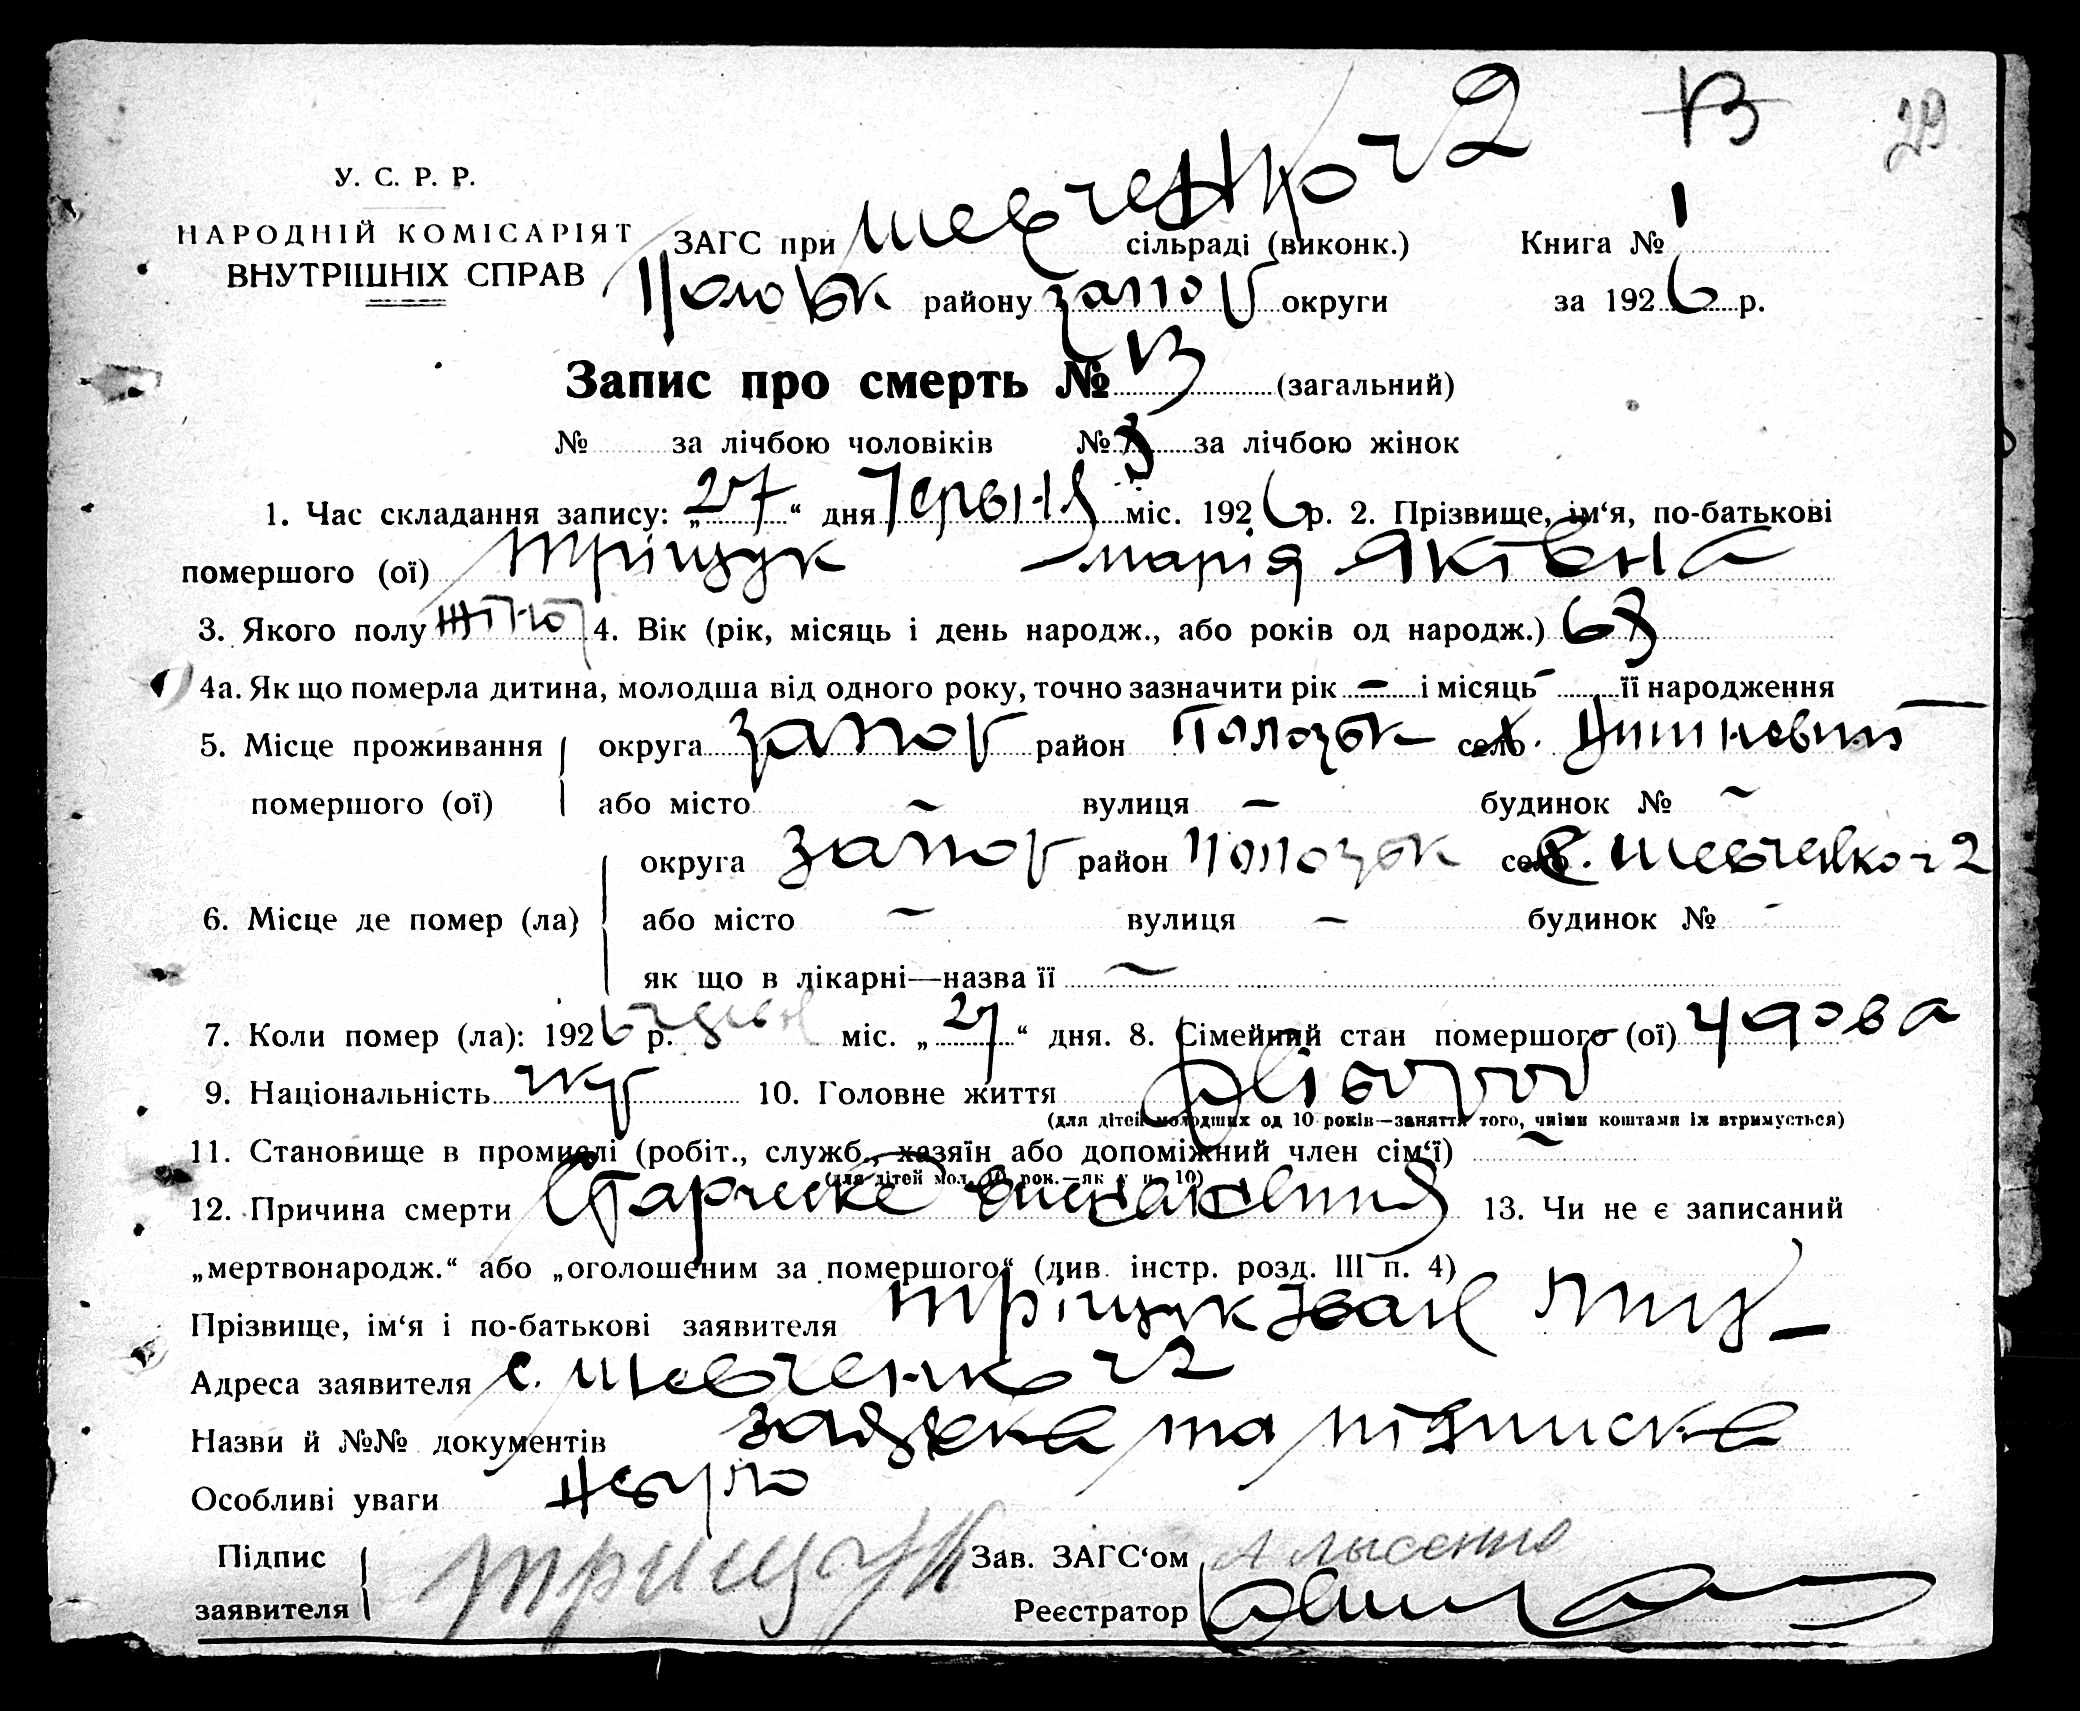 29
У. С. Р. Р.
НАРОДНІЙ КОМІСАРІЯТ
ВНУТРІШНІХ СПРАВ
ЗАГС при Шевченко ч2 сільраді (виконк.) Книга № 1
району Запор округи за 1926 р.
Запис про смерть № 13 (загальний)
№ за лічбою чоловіків № 8 за лічбою жінок
1. Час складання запису: „27“ дня Червня міс. 1926 р. 2. Прізвище, ім‘я, по-батькові
помершого (ої) Тріщук Марія Яківна
3. Якого полу жіно 4. Вік (рік, місяць і день народж., або років од народж.) 68
4а. Як що померла дитина, молодша від одного року, точно зазначити рік – і місяць – її народження
5. Місце проживання округа Запор район Полозьк село
помершого (ої) або місто – вулиця – будинок № –
округа Запор район Полозьк село с. Шевченко ч2
6. Місце де помер (ла) або місто – вулиця – будинок № –
як що в лікарні—назва її –
7. Коли помер (ла): 1926 р. міс. „27“ дня. 8. Сімейний стан помершого (ої) удова
9. Національність укр 10. Головне життя хлібороб
(для дітей молодших од 10 років—заняття того, чиїми коштами їх втримується)
11. Становище в промислі (робіт., служб., хазяїн або допоміжний член сім‘ї) –
(для дітей мол. 10 рок.—як у п. 10)
12. Причина смерти Старческе 13. Чи не є записаний
„мертвонародж.“ або „оголошеним за помершого“ (див. інстр. розд. III п. 4)
Прізвище, ім‘я і по-батькові заявителя Тріщук Іван
Адреса заявителя с. Шевченко ч2
Назви й №№ документів заявка та підписка
Особливі уваги Небуло
Підпис заявителя Трищук Зав. ЗАГС‘ом А Лысенко
Реєстратор